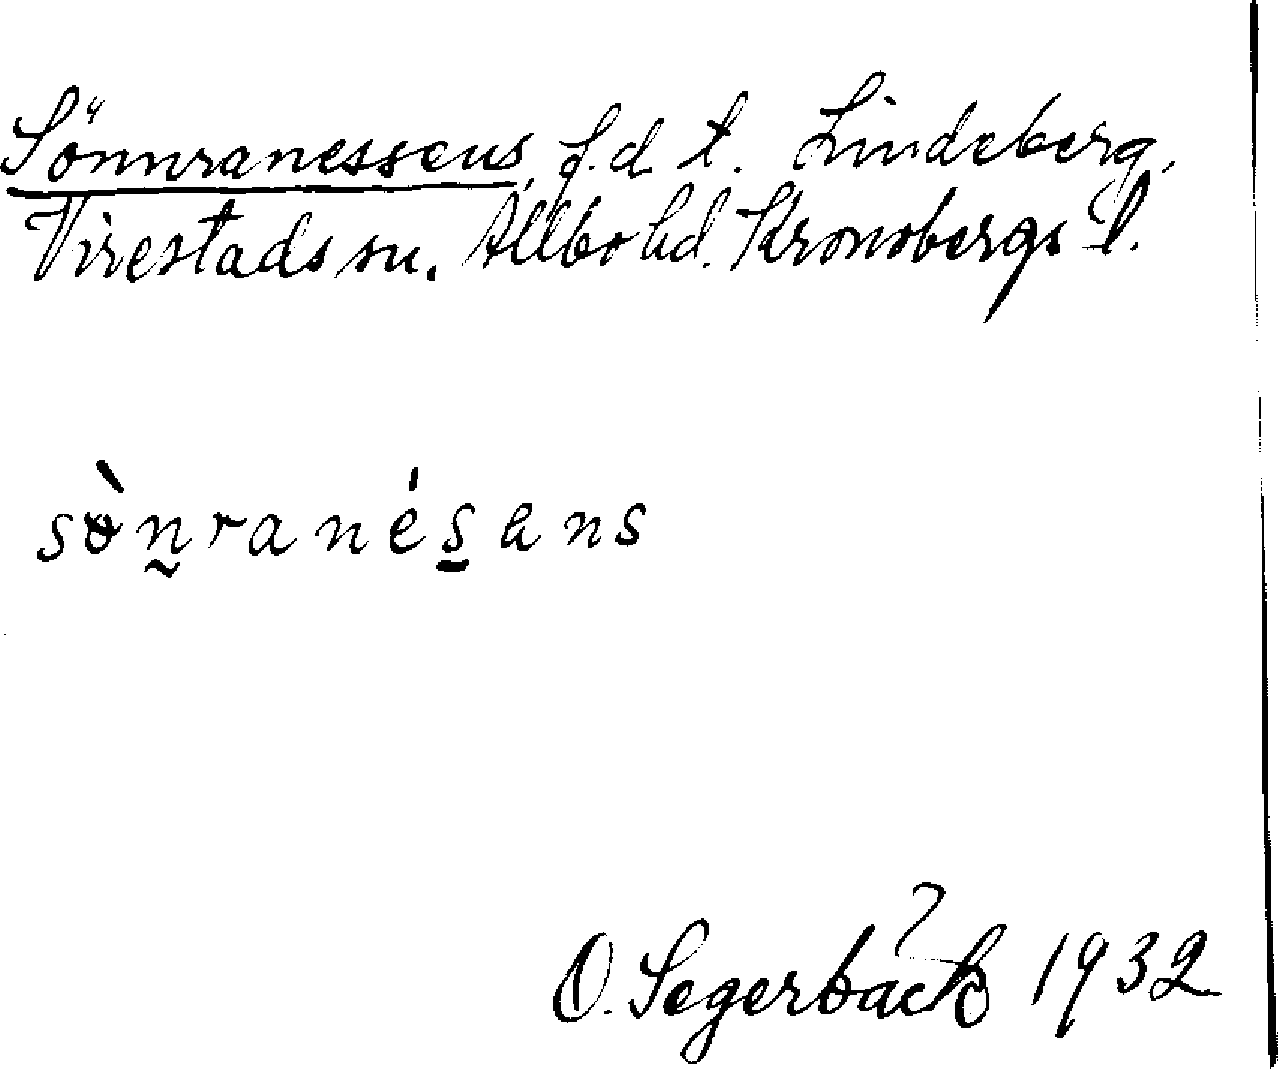 Sönnranessens, f.d. t. Lindeberg,
Virestads sn. Allbo hd. Kronobergs l.
sònranésans
O. Segerbäck 1932